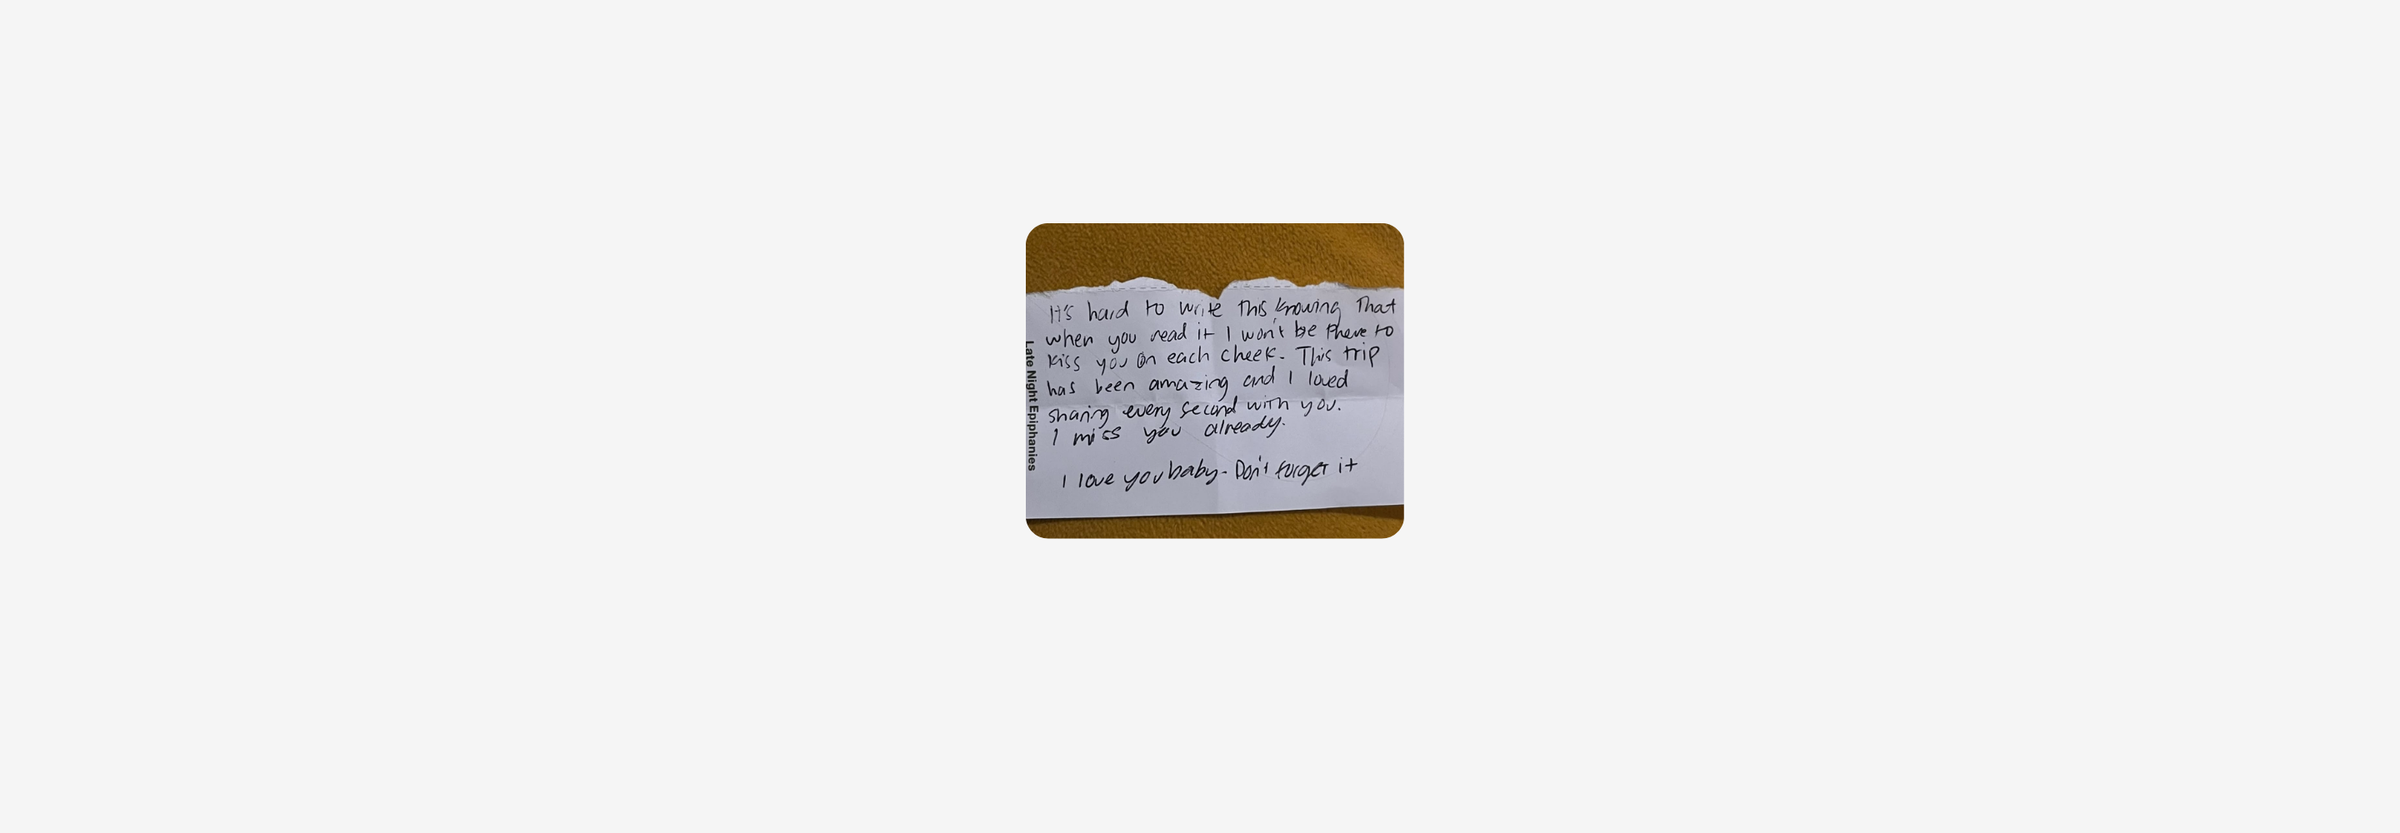 It's hard to write this knowing That
when you read it I won't be there to
kiss you on each cheek. This trip
has been amazing and I loved
sharing every second with you.
I miss you already.
I love you baby - Don't forget it
Late Night Epiphanies